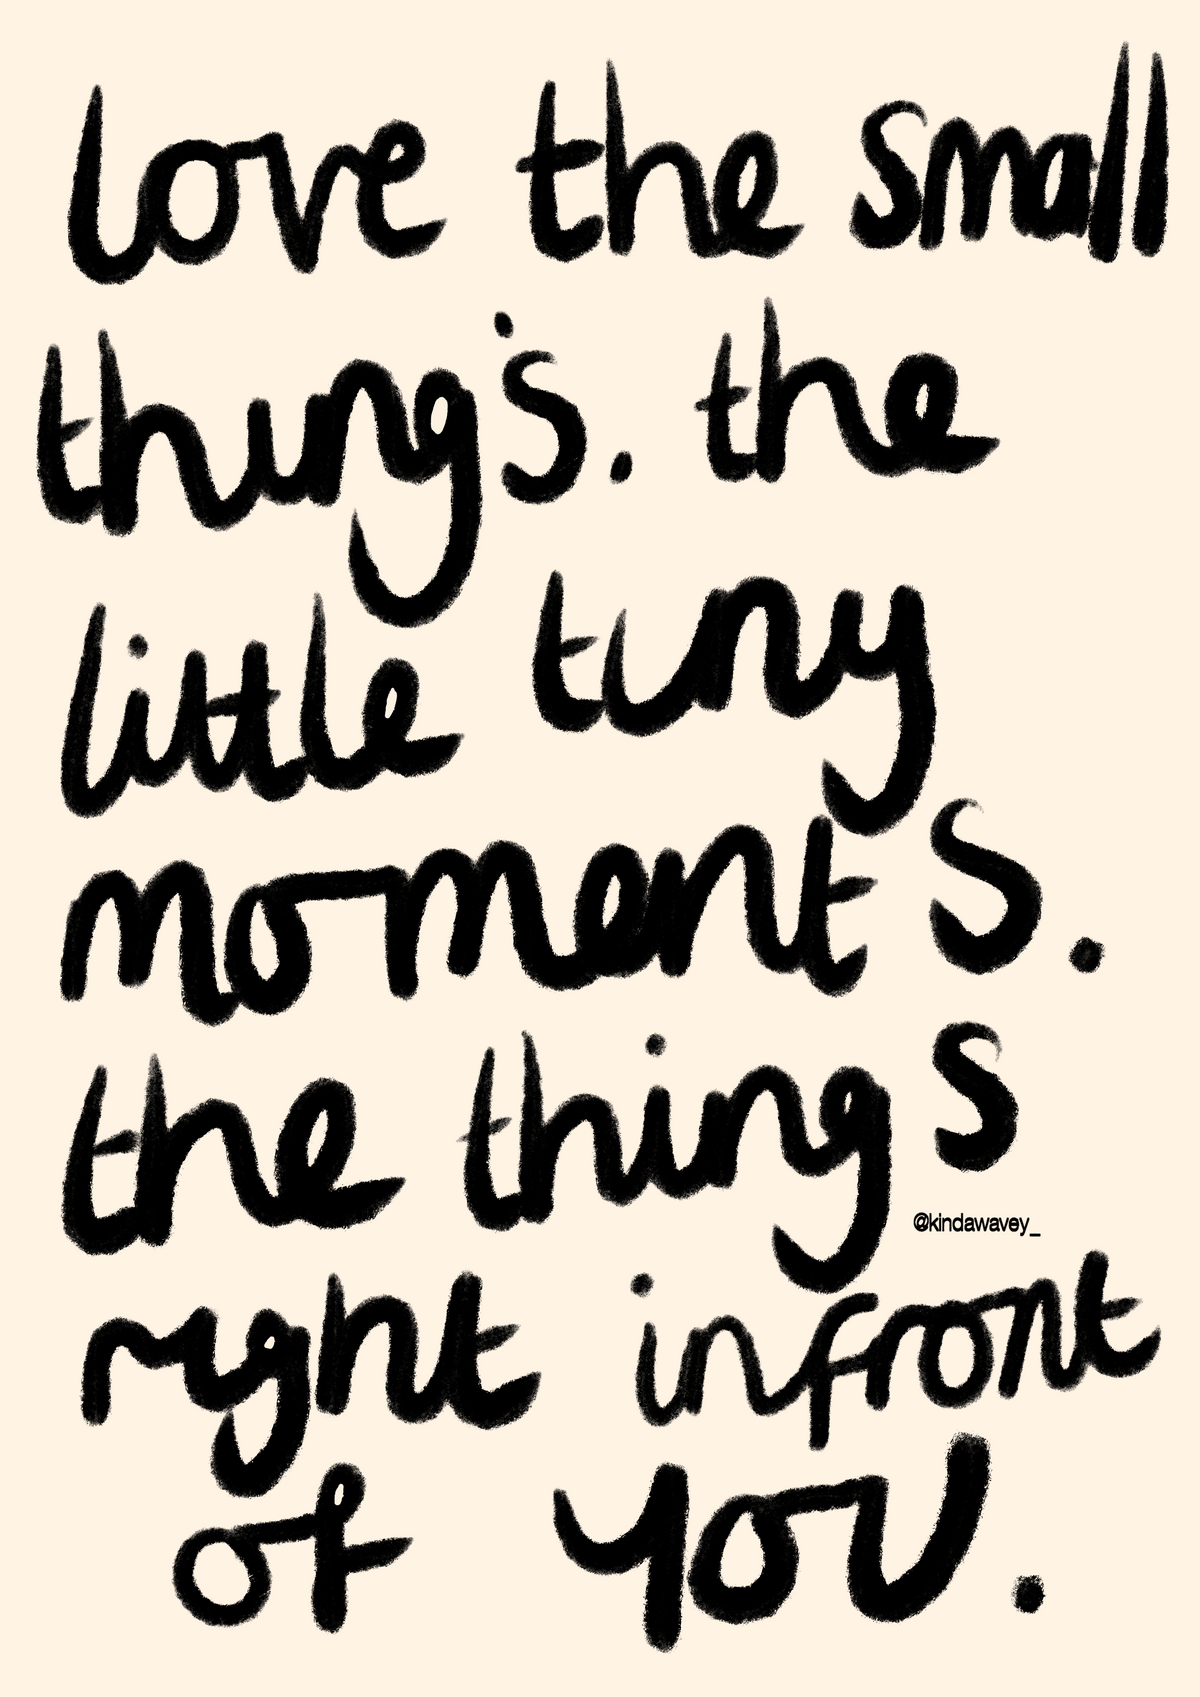 love the small
things. the
little tiny
moments.
the things
@kindawavey_
right infront
of you.